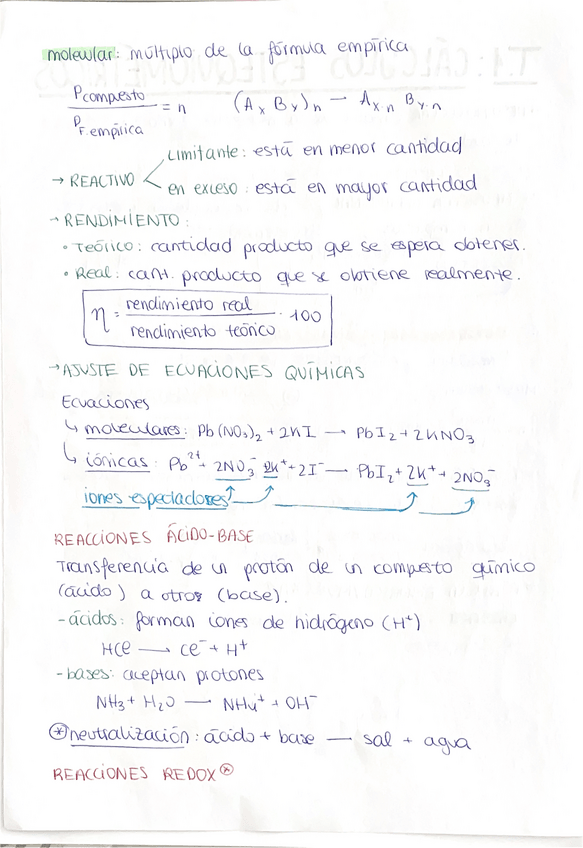 molecular: múltiplo de la fórmula empírica
P compuesto / P F. empírica = n (AxBy)n — Ax·n By·n
→ REACTIVO < Limitante: está en menor cantidad
en exceso: está en mayor cantidad
→ RENDIMIENTO:
• Teórico: cantidad producto que se espera obtener.
• Real: cant. producto que se obtiene realmente.
η = rendimiento real / rendimiento teórico · 100
→ AJUSTE DE ECUACIONES QUÍMICAS
Ecuaciones
↳ moleculares: Pb(NO₃)₂ + 2KI → PbI₂ + 2KNO₃
↳ iónicas: Pb²⁺ + 2NO₃⁻ 2K⁺ + 2I⁻ → PbI₂ + 2K⁺ + 2NO₃⁻
iones espectadores
REACCIONES ÁCIDO-BASE
Transferencia de un protón de un compuesto químico
(ácido) a otros (base).
- ácidos: forman iones de hidrógeno (H⁺)
HCl → Cl⁻ + H⁺
- bases: aceptan protones
NH₃ + H₂O → NH₄⁺ + OH⁻
* neutralización: ácido + base — sal + agua
REACCIONES REDOX *